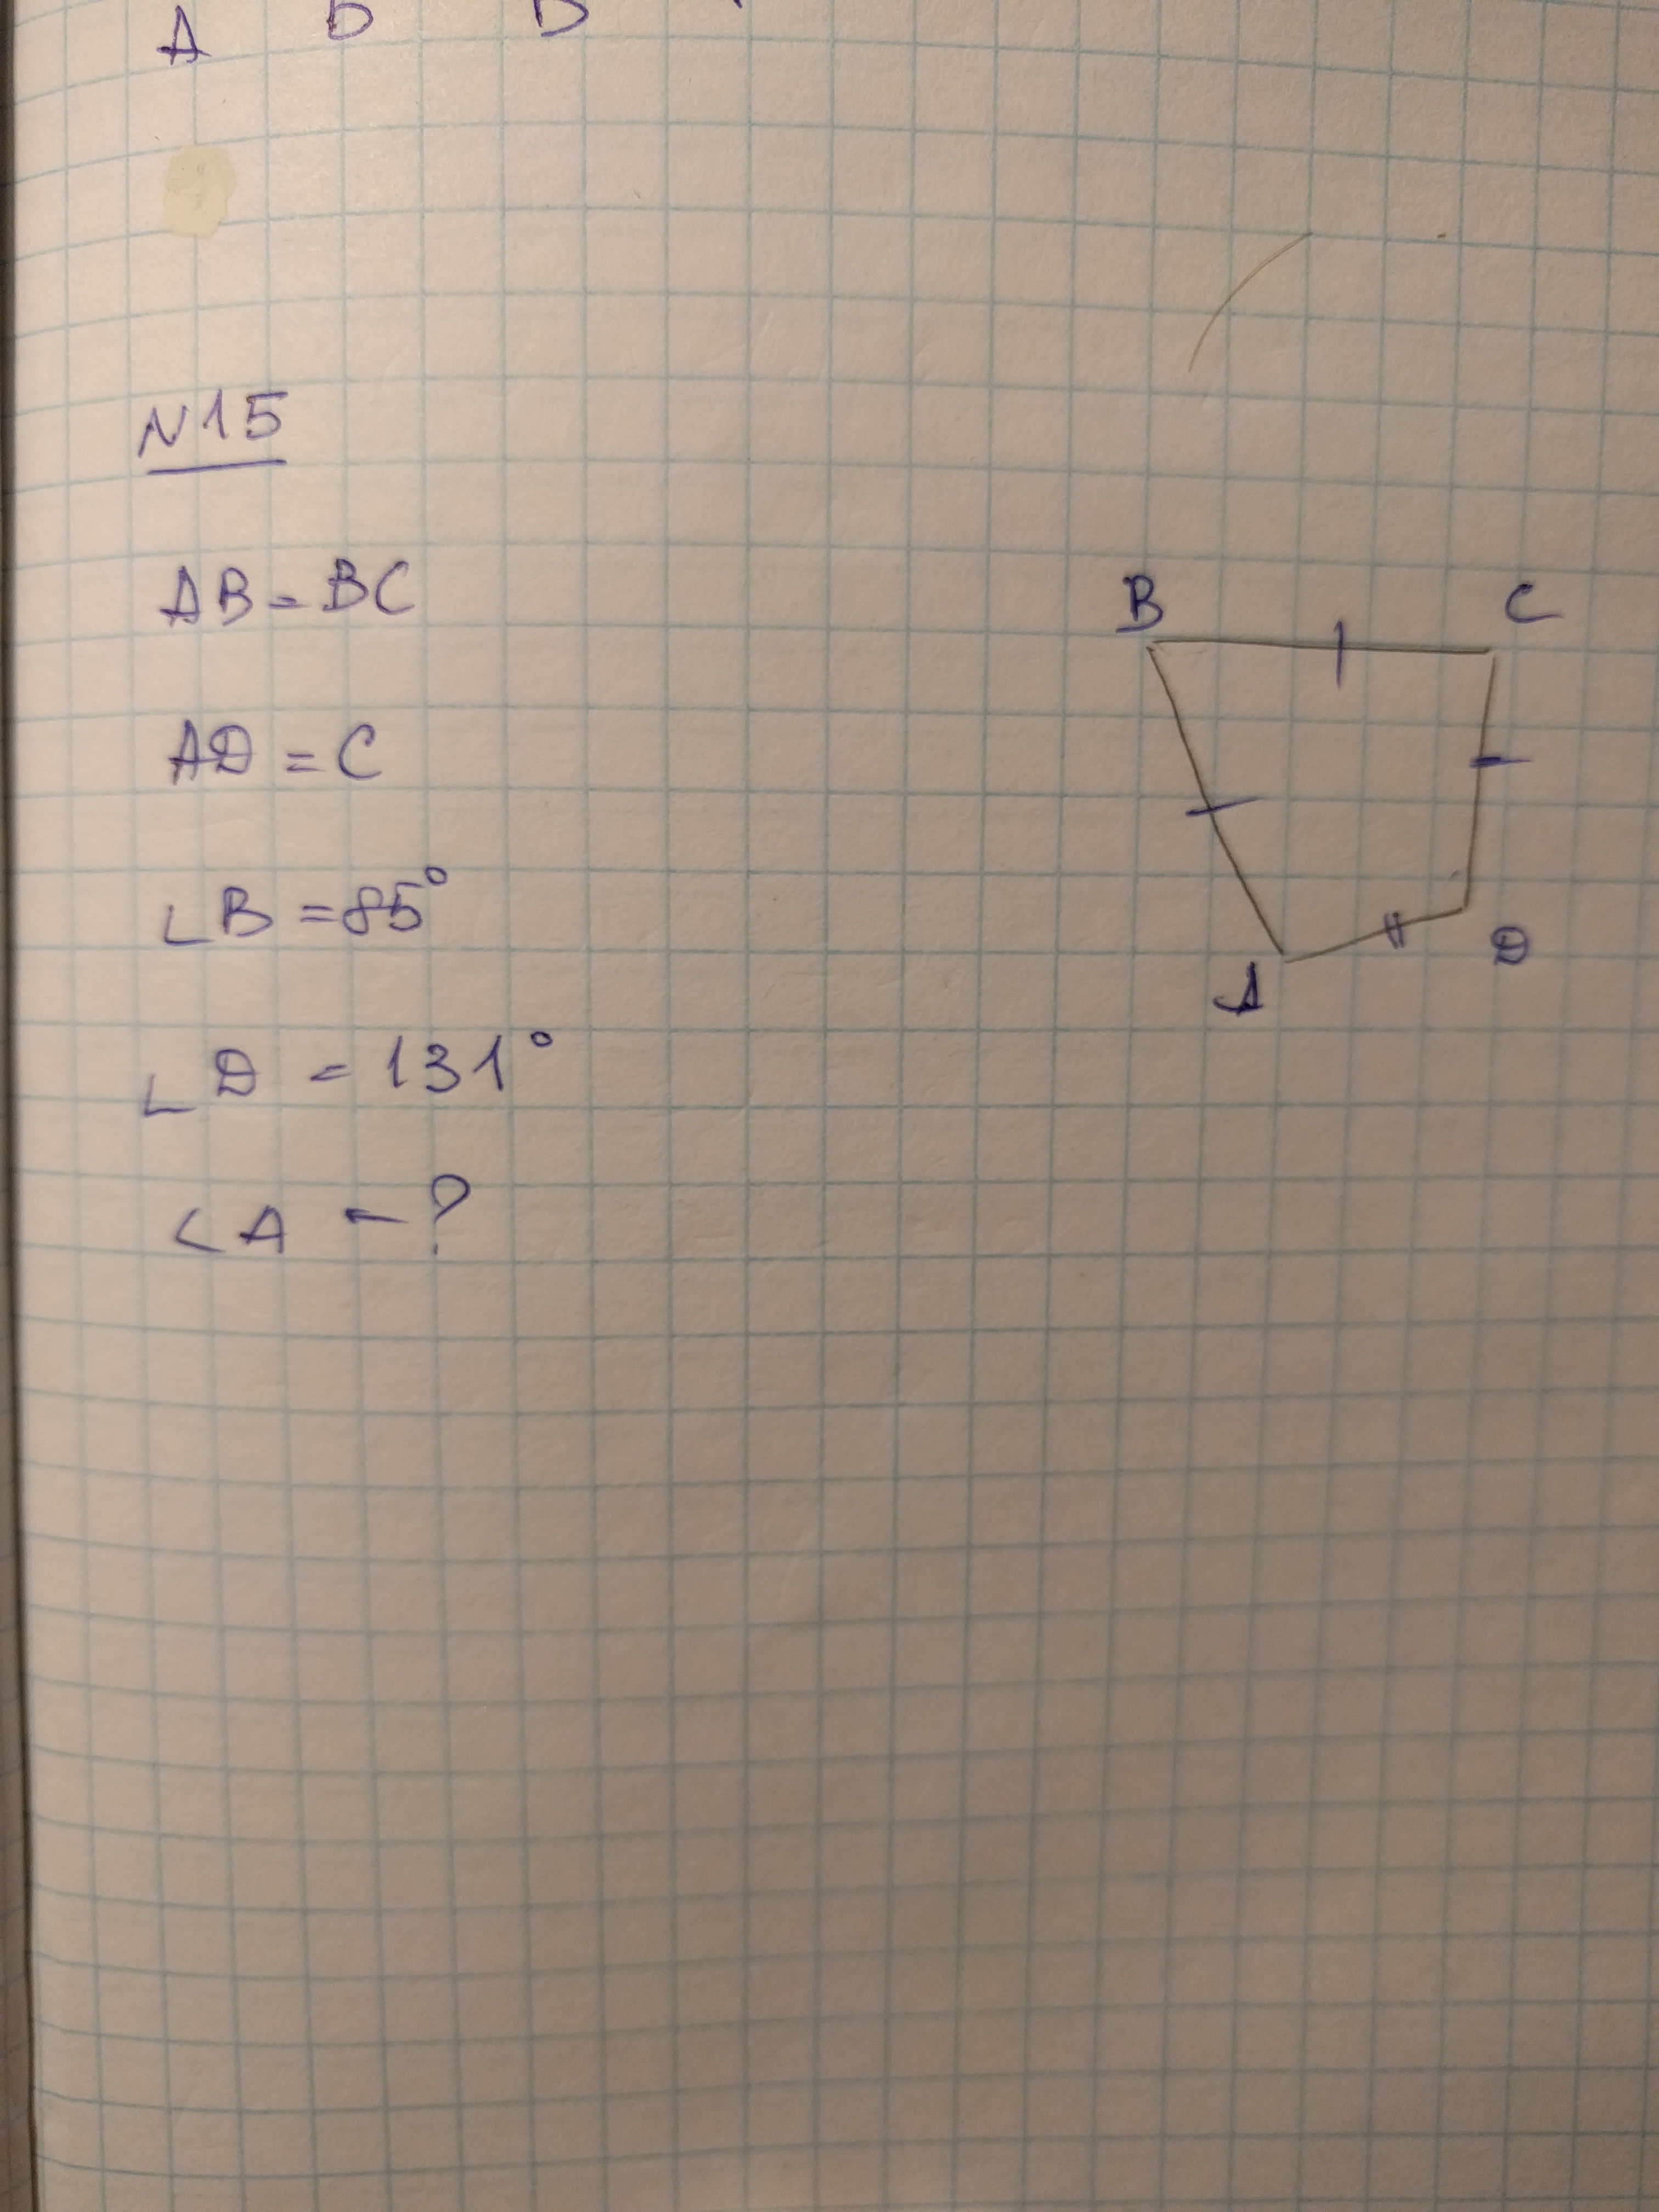 A
№15
AB = BC
AD = C
∠B = 85°
∠D = 131°
∠A - ?
B C
A D